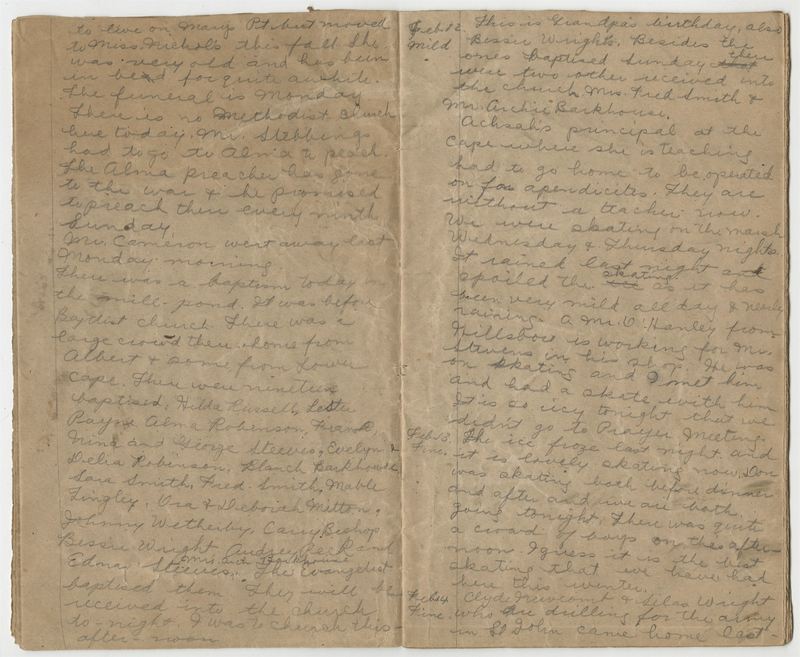 to live on Mary's Pt. but moved
to Miss Nichols this fall. She
was very old and has been
in bed for quite awhile.
The funeral is Monday
There is no Methodist church
here today. Mr. Stebbings
had to go to Alma to peach.
The Alma preacher has gone
to the war & he promised
to preach there every ninth
Sunday.
Mr. Cameron went away last
Monday morning
There was a baptism today in
the mill-pond. It was before
Baptist church. There was a
large crowd there. some from
Albert & some from Lower
Cape. There were nineteen
baptised. Hilda Russell, Lester
Alma Robinson, Frank,
Nina and George Steeves, Evelyn &
Delia Robinson, Blanch Barkhouse
Sara Smith, Fred Smith, Mable
Tingley, Ora & Deborah Mitton,
Johnny Wetherby, Carry Bishop
Bessie Wright, Audrey Peck and
Mrs. Barkhouse
Edna Steeves. The Evangelist
baptised them. They will be
received into the church
to-night. I was to church this
after-noon
Feb 12 This is Grandpa's birthday, also
Mild Bessie Wright's. Besides the
ones baptised Sunday there
were two other received into
the church Mrs. Fred Smith &
Mr. Archie Barkhouse.
Achsah's principal at the
Cape where she is teaching
had to go home to be operated
on for apendicites. They are
without a teacher now.
We were skating on the marsh
Wednesday & Thursday nights.
It rained last night and
skating
spoiled the as it has
been very mild all day & nearly
raining. A Mr. O'Hanley from
Hillsboro is working for Mr.
Stevens in his He was
on skating and I met him
and had a skate with him
It is so icy tonight that we
didn't go to Prayer Meeting.
Feb 13 The ice froze last night and
Fine. it is lovely skating now. Don
was skating both before dinner
and after and we are both
going tonight. There was quite
a crowd of boys on this after-
noon I guess it is the best
skating that we have had
here this winter.
Feb 14 Clyde Newcomb & Silas Wright
Fine. who are drilling for the army
in St John came home last